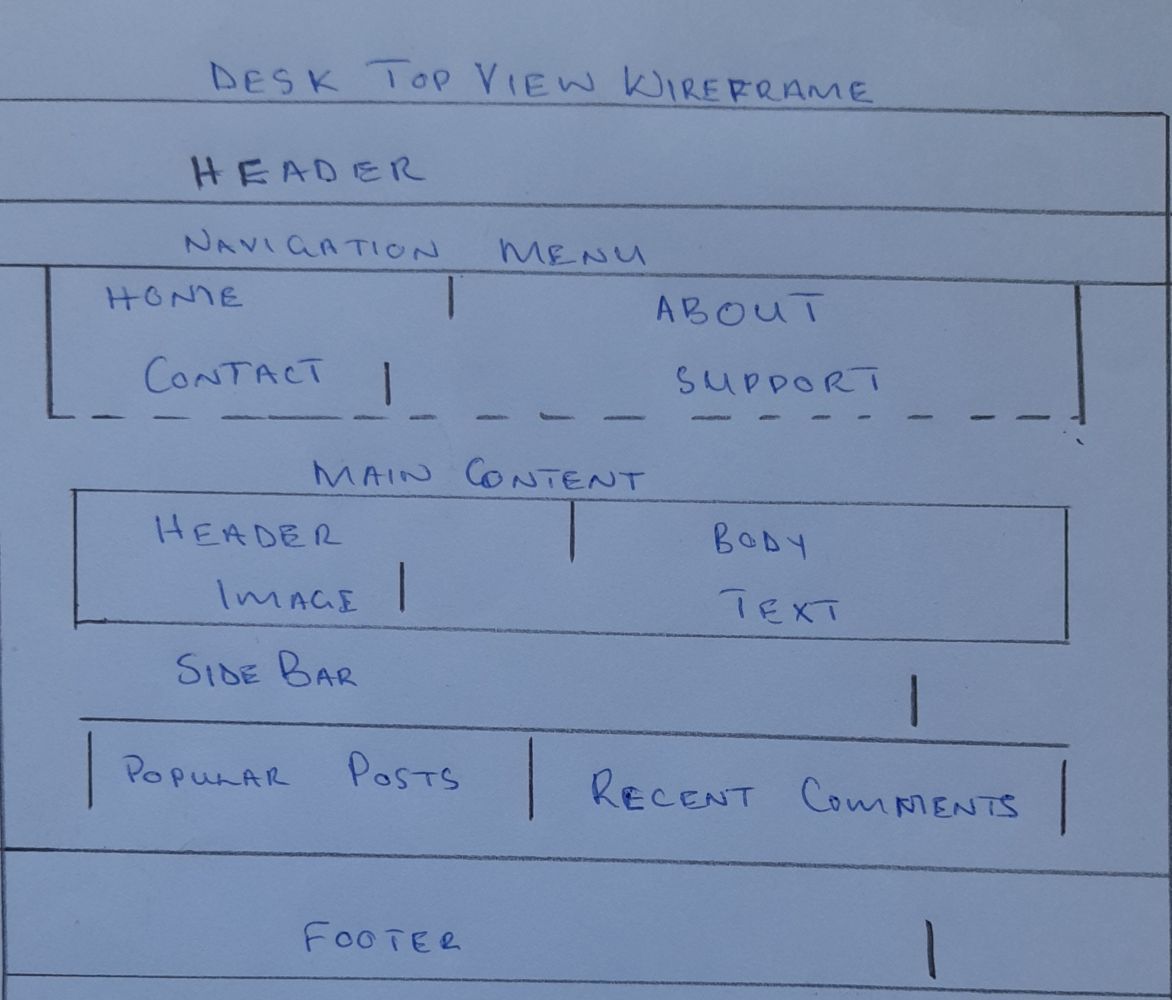 DESK TOP VIEW WIREFRAME
HEADER
NAVIGATION MENU
HOME ABOUT
CONTACT SUPPORT
MAIN CONTENT
HEADER BODY
IMAGE TEXT
SIDE BAR
POPULAR POSTS RECENT COMMENTS
FOOTER